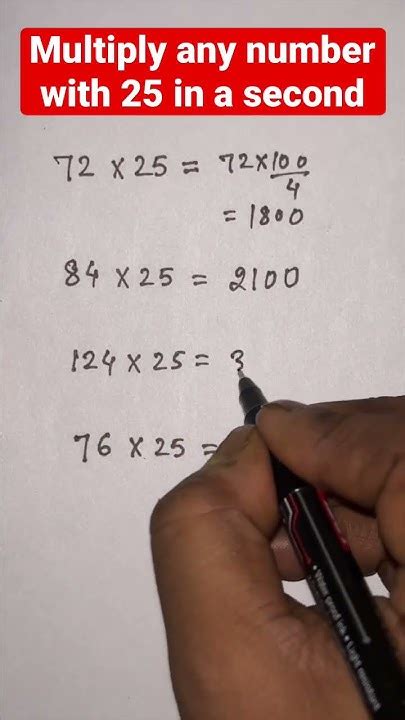 Multiply any number
with 25 in a second
72 × 25 = 72×100/4
= 1800
84 × 25 = 2100
124 × 25 = 3
76 × 25 =